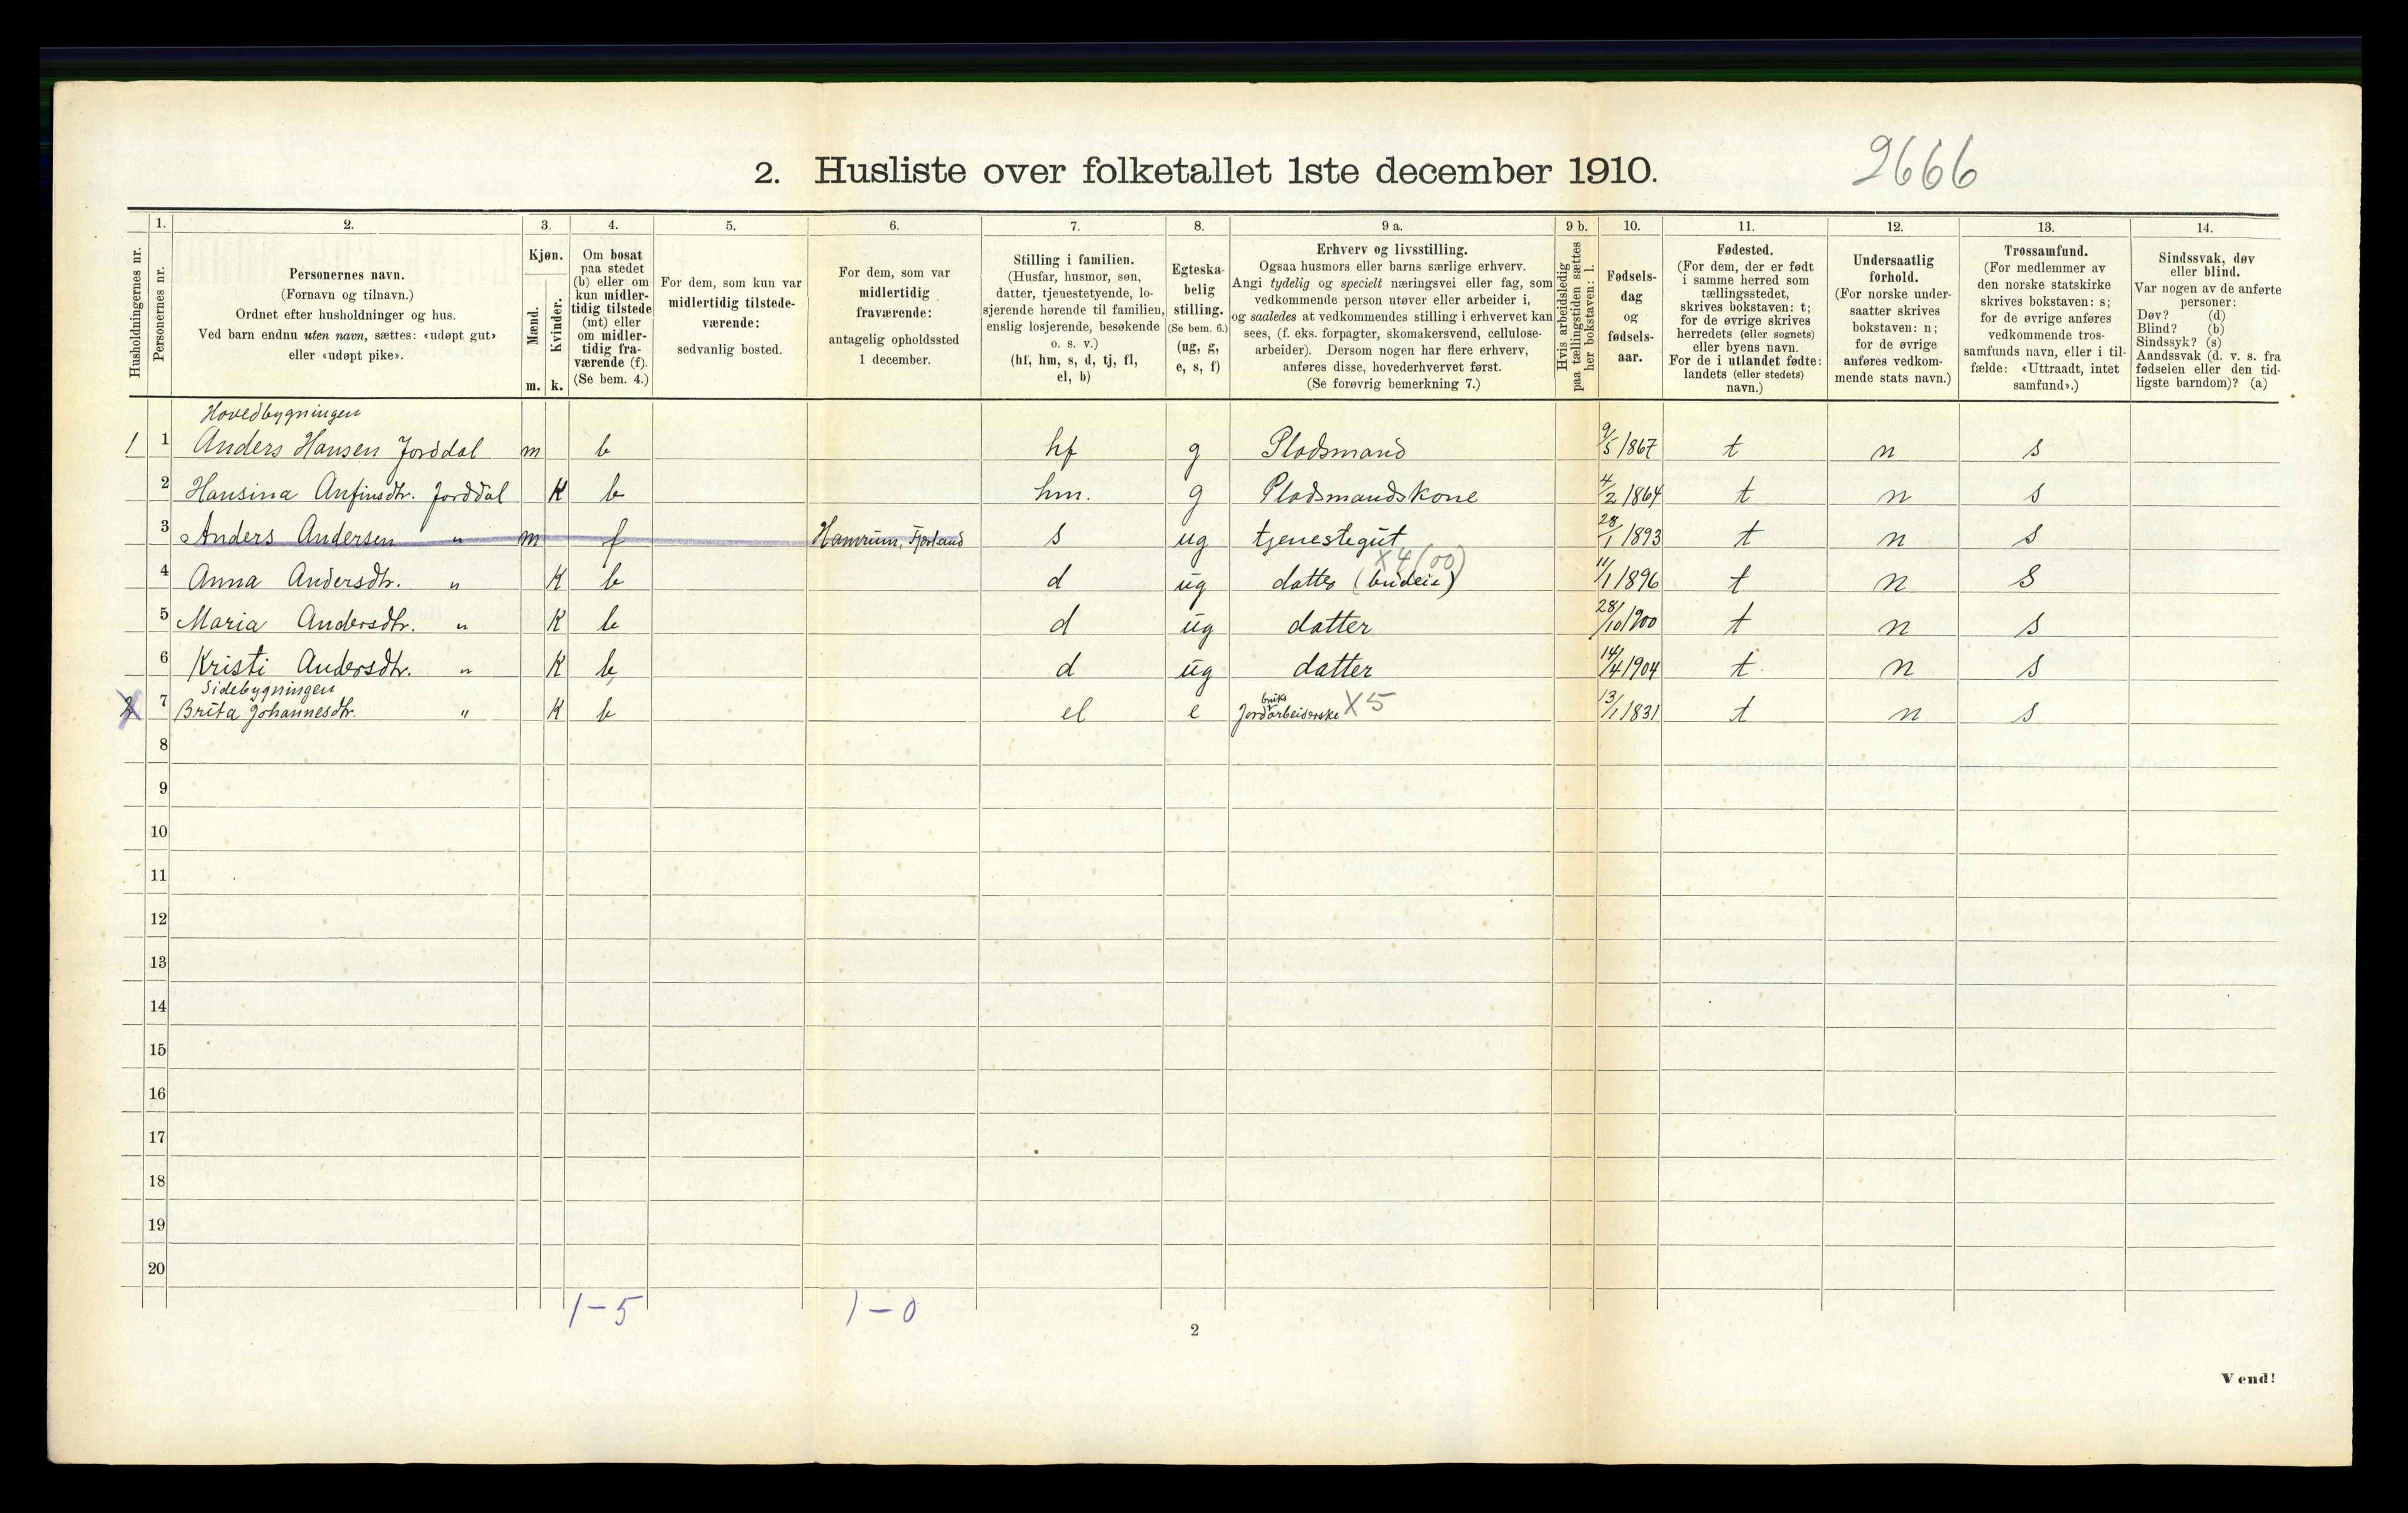 2. Husliste over folketallet 1ste december 1910.
2666
Husholdningernes nr.
1.
Personernes nr.
2.
Personernes navn.
(Fornavn og tilnavn.)
Ordnet efter husholdninger og hus.
Ved barn endnu uten navn, sættes: «udøpt gut»
eller «udøpt pike».
3.
Kjøn.
Mænd.
Kvinder.
m. k.
4.
Om bosat
paa stedet
(b) eller om
kun midler-
tidig tilstede
(mt) eller
om midler-
tidig fra-
værende (f).
(Se bem. 4.)
5.
For dem, som kun var
midlertidig tilstede-
værende:
sedvanlig bosted.
6.
For dem, som var
midlertidig
fraværende:
antagelig opholdssted
1 december.
7.
Stilling i familien.
(Husfar, husmor, søn,
datter, tjenestetyende, lo-
sjerende hørende til familien,
enslig losjerende, besøkende
o. s. v.)
(hf, hm, s, d, tj, fl,
el, b)
8.
Egteska-
belig
stilling.
(Se bem. 6.)
(ug, g,
e, s, f)
9 a.
Erhverv og livsstilling.
Ogsaa husmors eller barns særlige erhverv.
Angi tydelig og specielt næringsvei eller fag, som
vedkommende person utøver eller arbeider i,
og saaledes at vedkommendes stilling i erhvervet kan
sees, (f. eks. forpagter, skomakersvend, cellulose-
arbeider). Dersom nogen har flere erhverv,
anføres disse, hovederhvervet først.
(Se forøvrig bemerkning 7.)
9 b.
Hvis arbeidsledig
paa tællingstiden sættes
her bokstaven: l.
10.
Fødsels-
dag
og
fødsels-
aar.
11.
Fødested.
(For dem, der er født
i samme herred som
tællingsstedet,
skrives bokstaven: t;
for de øvrige skrives
herredets (eller sognets)
eller byens navn.
For de i utlandet fødte:
landets (eller stedets)
navn.)
12.
Undersaatlig
forhold.
(For norske under-
saatter skrives
bokstaven: n;
for de øvrige
anføres vedkom-
mende stats navn.)
13.
Trossamfund.
(For medlemmer av
den norske statskirke
skrives bokstaven: s;
for de øvrige anføres
vedkommende tros-
samfunds navn, eller i til-
fælde: «Uttraadt, intet
samfund».)
14.
Sindssvak, døv
eller blind.
Var nogen av de anførte
personer:
Døv? (d)
Blind? (b)
Sindssyk? (s)
Aandssvak (d. v. s. fra
fødselen eller den tid-
ligste barndom)? (a)
Hovedbygningen
1 1 Anders Hansen Jorddal m b hf g Pladsmand 9/5 1867 t n s
2 Hansina Anfinsdtr. Jorddal K b hm. g Pladsmandskone 4/2 1864 t n s
3 Anders Andersen " m f Hamrum, Fjærland s ug tjenestegut 28/1 1893 t n s
X4(00)
4 Anna Andersdtr. " K b d ug datter (budeie) 11/1 1896 t n s
5 Maria Andersdtr. " K b d ug datter 28/10 1900 t n s
6 Kristi Andersdtr. " K b d ug datter 14/4 1904 t n s
Sidebygningen
2 7 Brita Johannesdtr. " K b el e Jordbruksarbeiderske X5 13/1 1831 t n s
8
9
10
11
12
13
14
15
16
17
18
19
20
1-5 1-0
2
Vend!